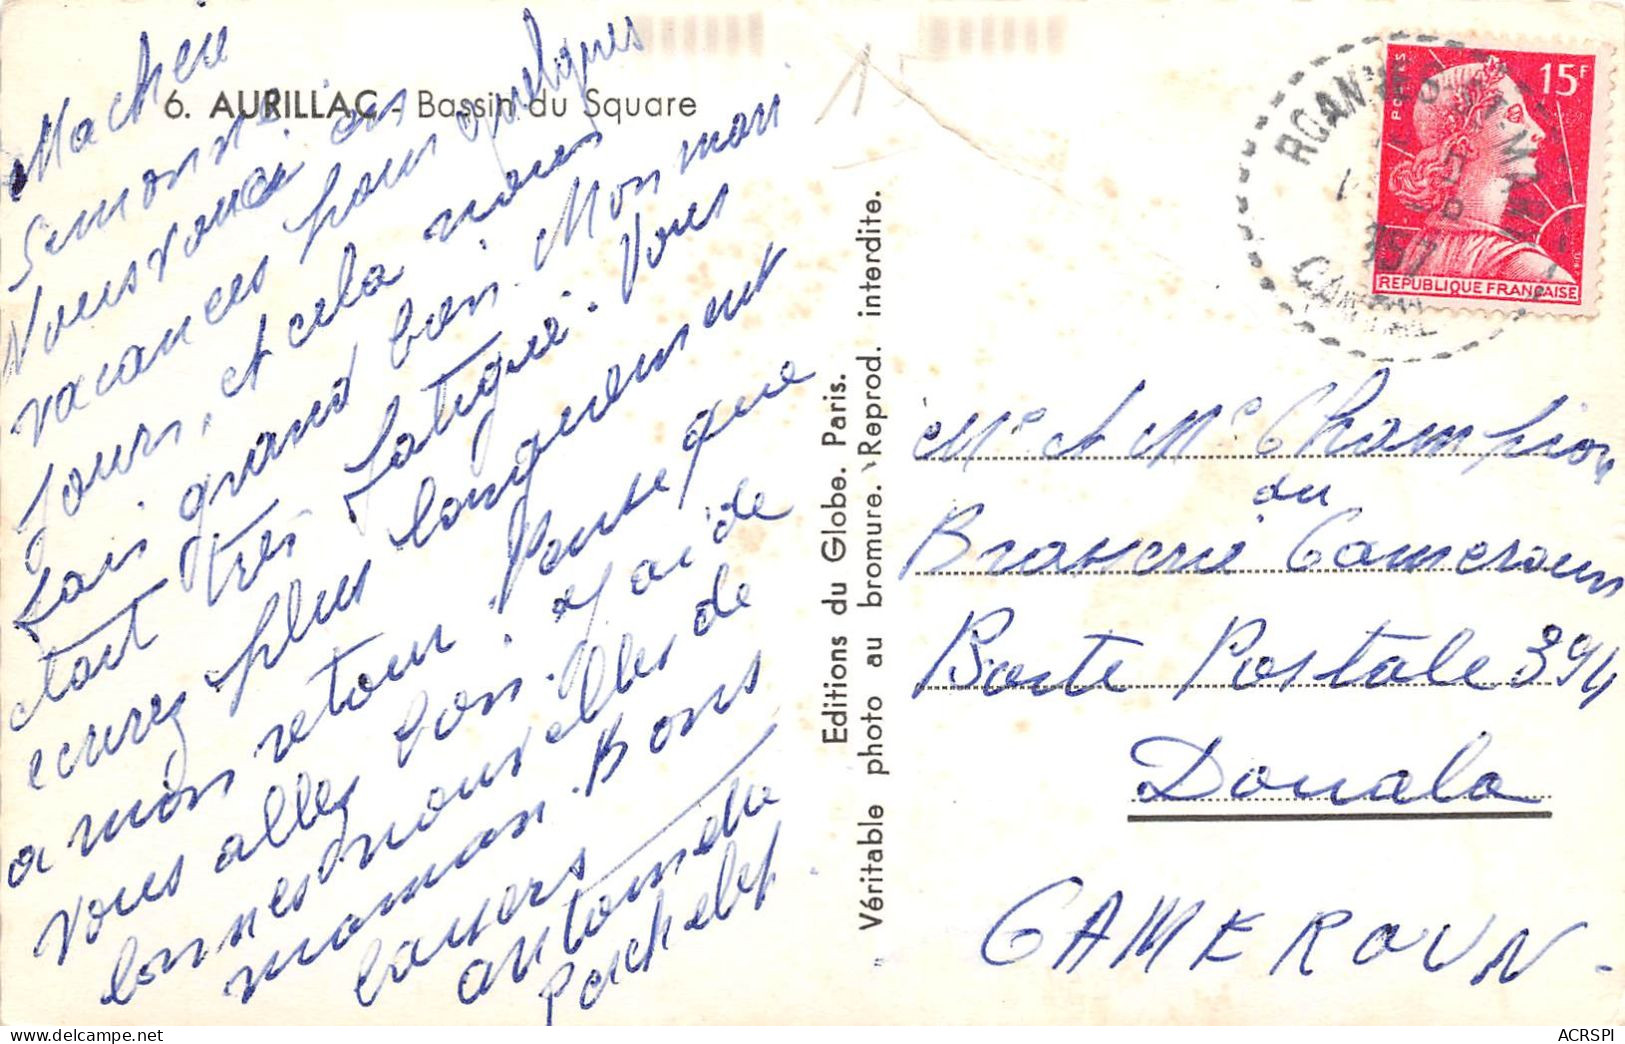 6. AURILLAC - Bassin du Square
Ma chère
Simonne
Nous voici en
vacances pour quelques
jours, et cela nous
fais grand bien. Mon mari
etait très fatigué. Vous
ecurez plus longuement
a mon retour. Pense que
vous allez bon. J'ai de
bonnes nouvelles de
maman. Bons
baisers
antoinette
Pachelet
Editions du Globe. Paris.
Véritable photo au bromure. Reprod. interdite.
ROANNES-ST-MARY
1957
CANTAL
POSTES
15F
REPUBLIQUE FRANÇAISE
Mr et Me Champion
du
Brasserie Cameroun
Boite Postale 394
Douala
CAMEROUN.
ACRSPI